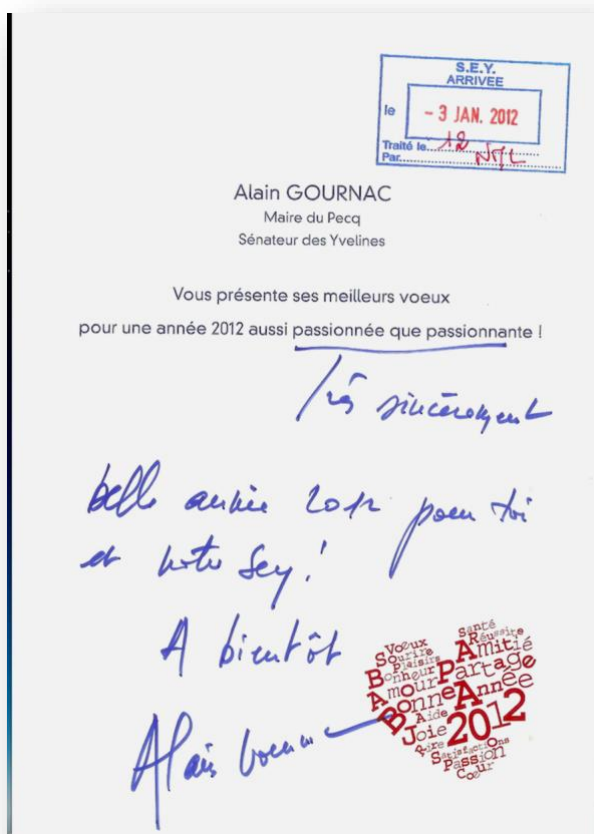 S.E.Y.
ARRIVEE
le - 3 JAN. 2012
Traité le 12
Par
Alain GOURNAC
Maire du Pecq
Sénateur des Yvelines
Vous présente ses meilleurs voeux
pour une année 2012 aussi passionnée que passionnante !
Très sincèrement
belle année 2012 pour toi
et notre Sey !
A bientôt
Alain
Santé
Voeux Réussite
Sourire Amitié
Plaisirs
Bonheur Partage
Amour
Bonne Année
Aide
Joie 2012
Rire
Satisfactions
Passion
Coeur